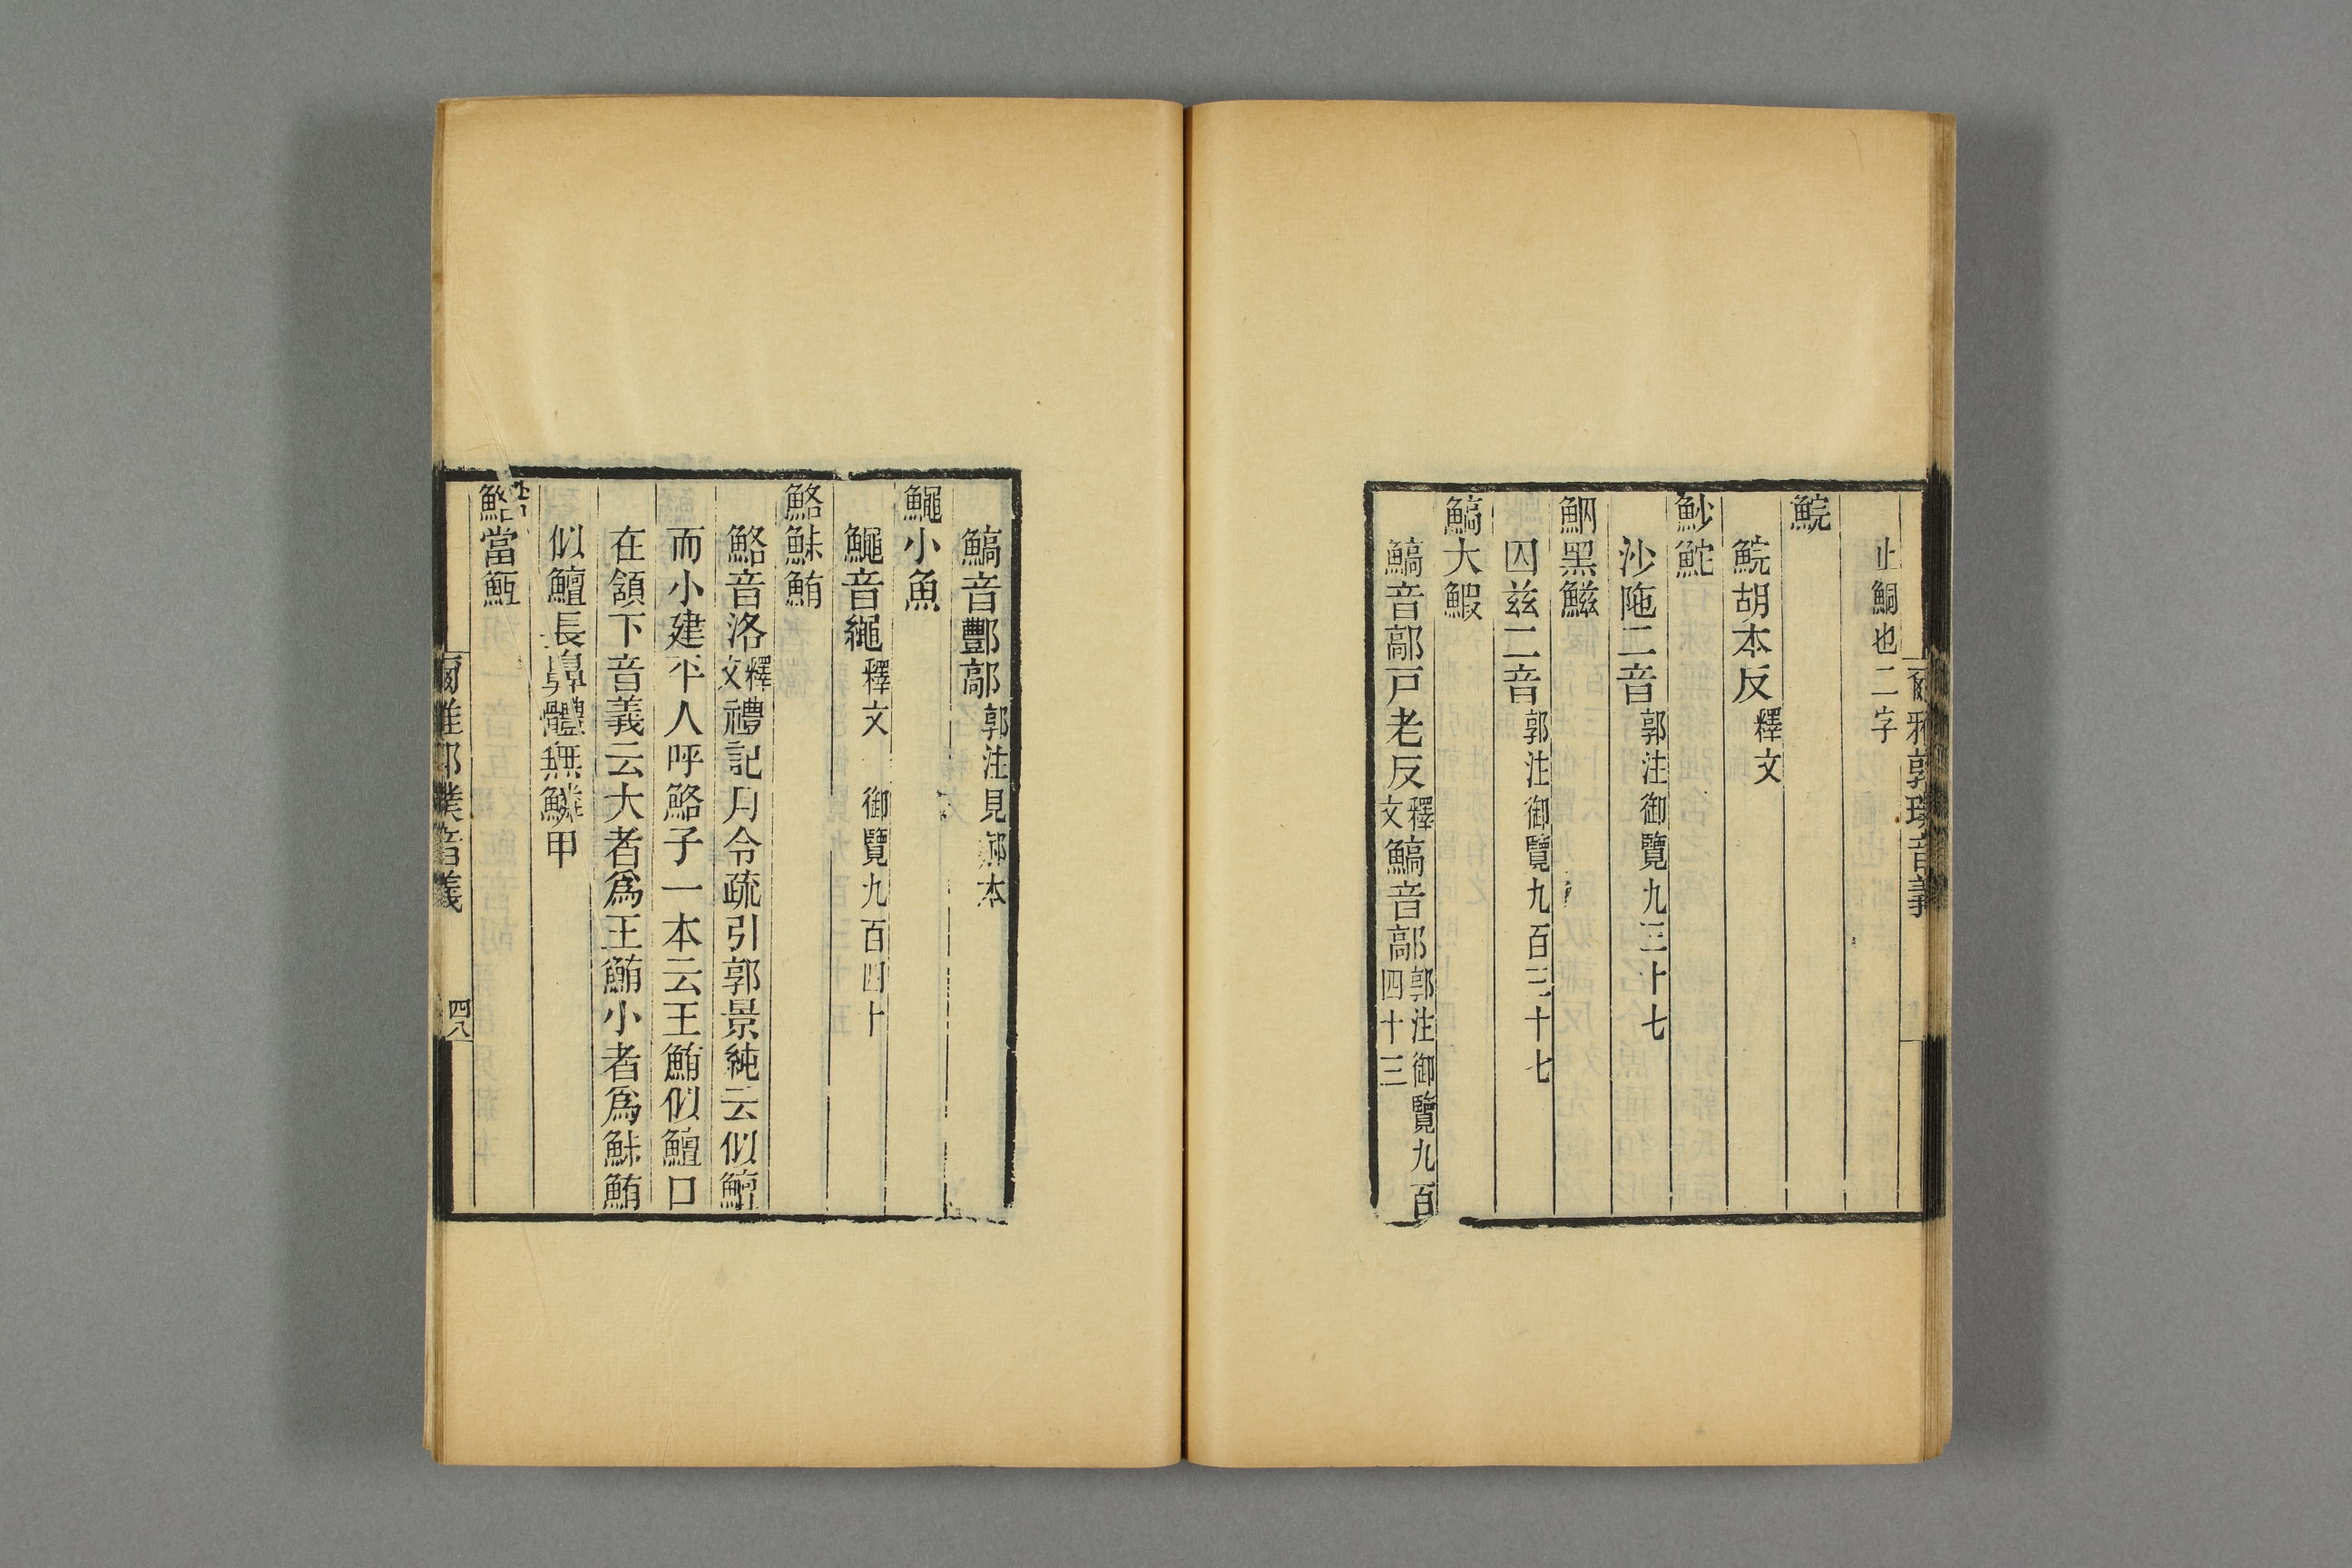 爾雅郭璞音義
止鮦也二字
鯇
鯇胡本反釋文
魦鮀
沙陁二音郭注御覽九三十七
鮂黑鰦
囚兹二音郭注御覽九百三十七
鰝大鰕
鰝音鄗戸老反釋文鰝音鄗郭注御覽九百四十三
鰝音酆鄗郭注見郷本
鱦小魚
鱦音繩釋文 御覽九百四十
鮥鮇鮪
鮥音洛釋文禮記月令疏引郭景純云似鱣
而小建平人呼鮥子一本云王鮪似鱣口
在頷下音義云大者爲王鮪小者爲鮇鮪
似鱣長鼻體無鱗甲
當魱
爾雅郭璞音義
四八